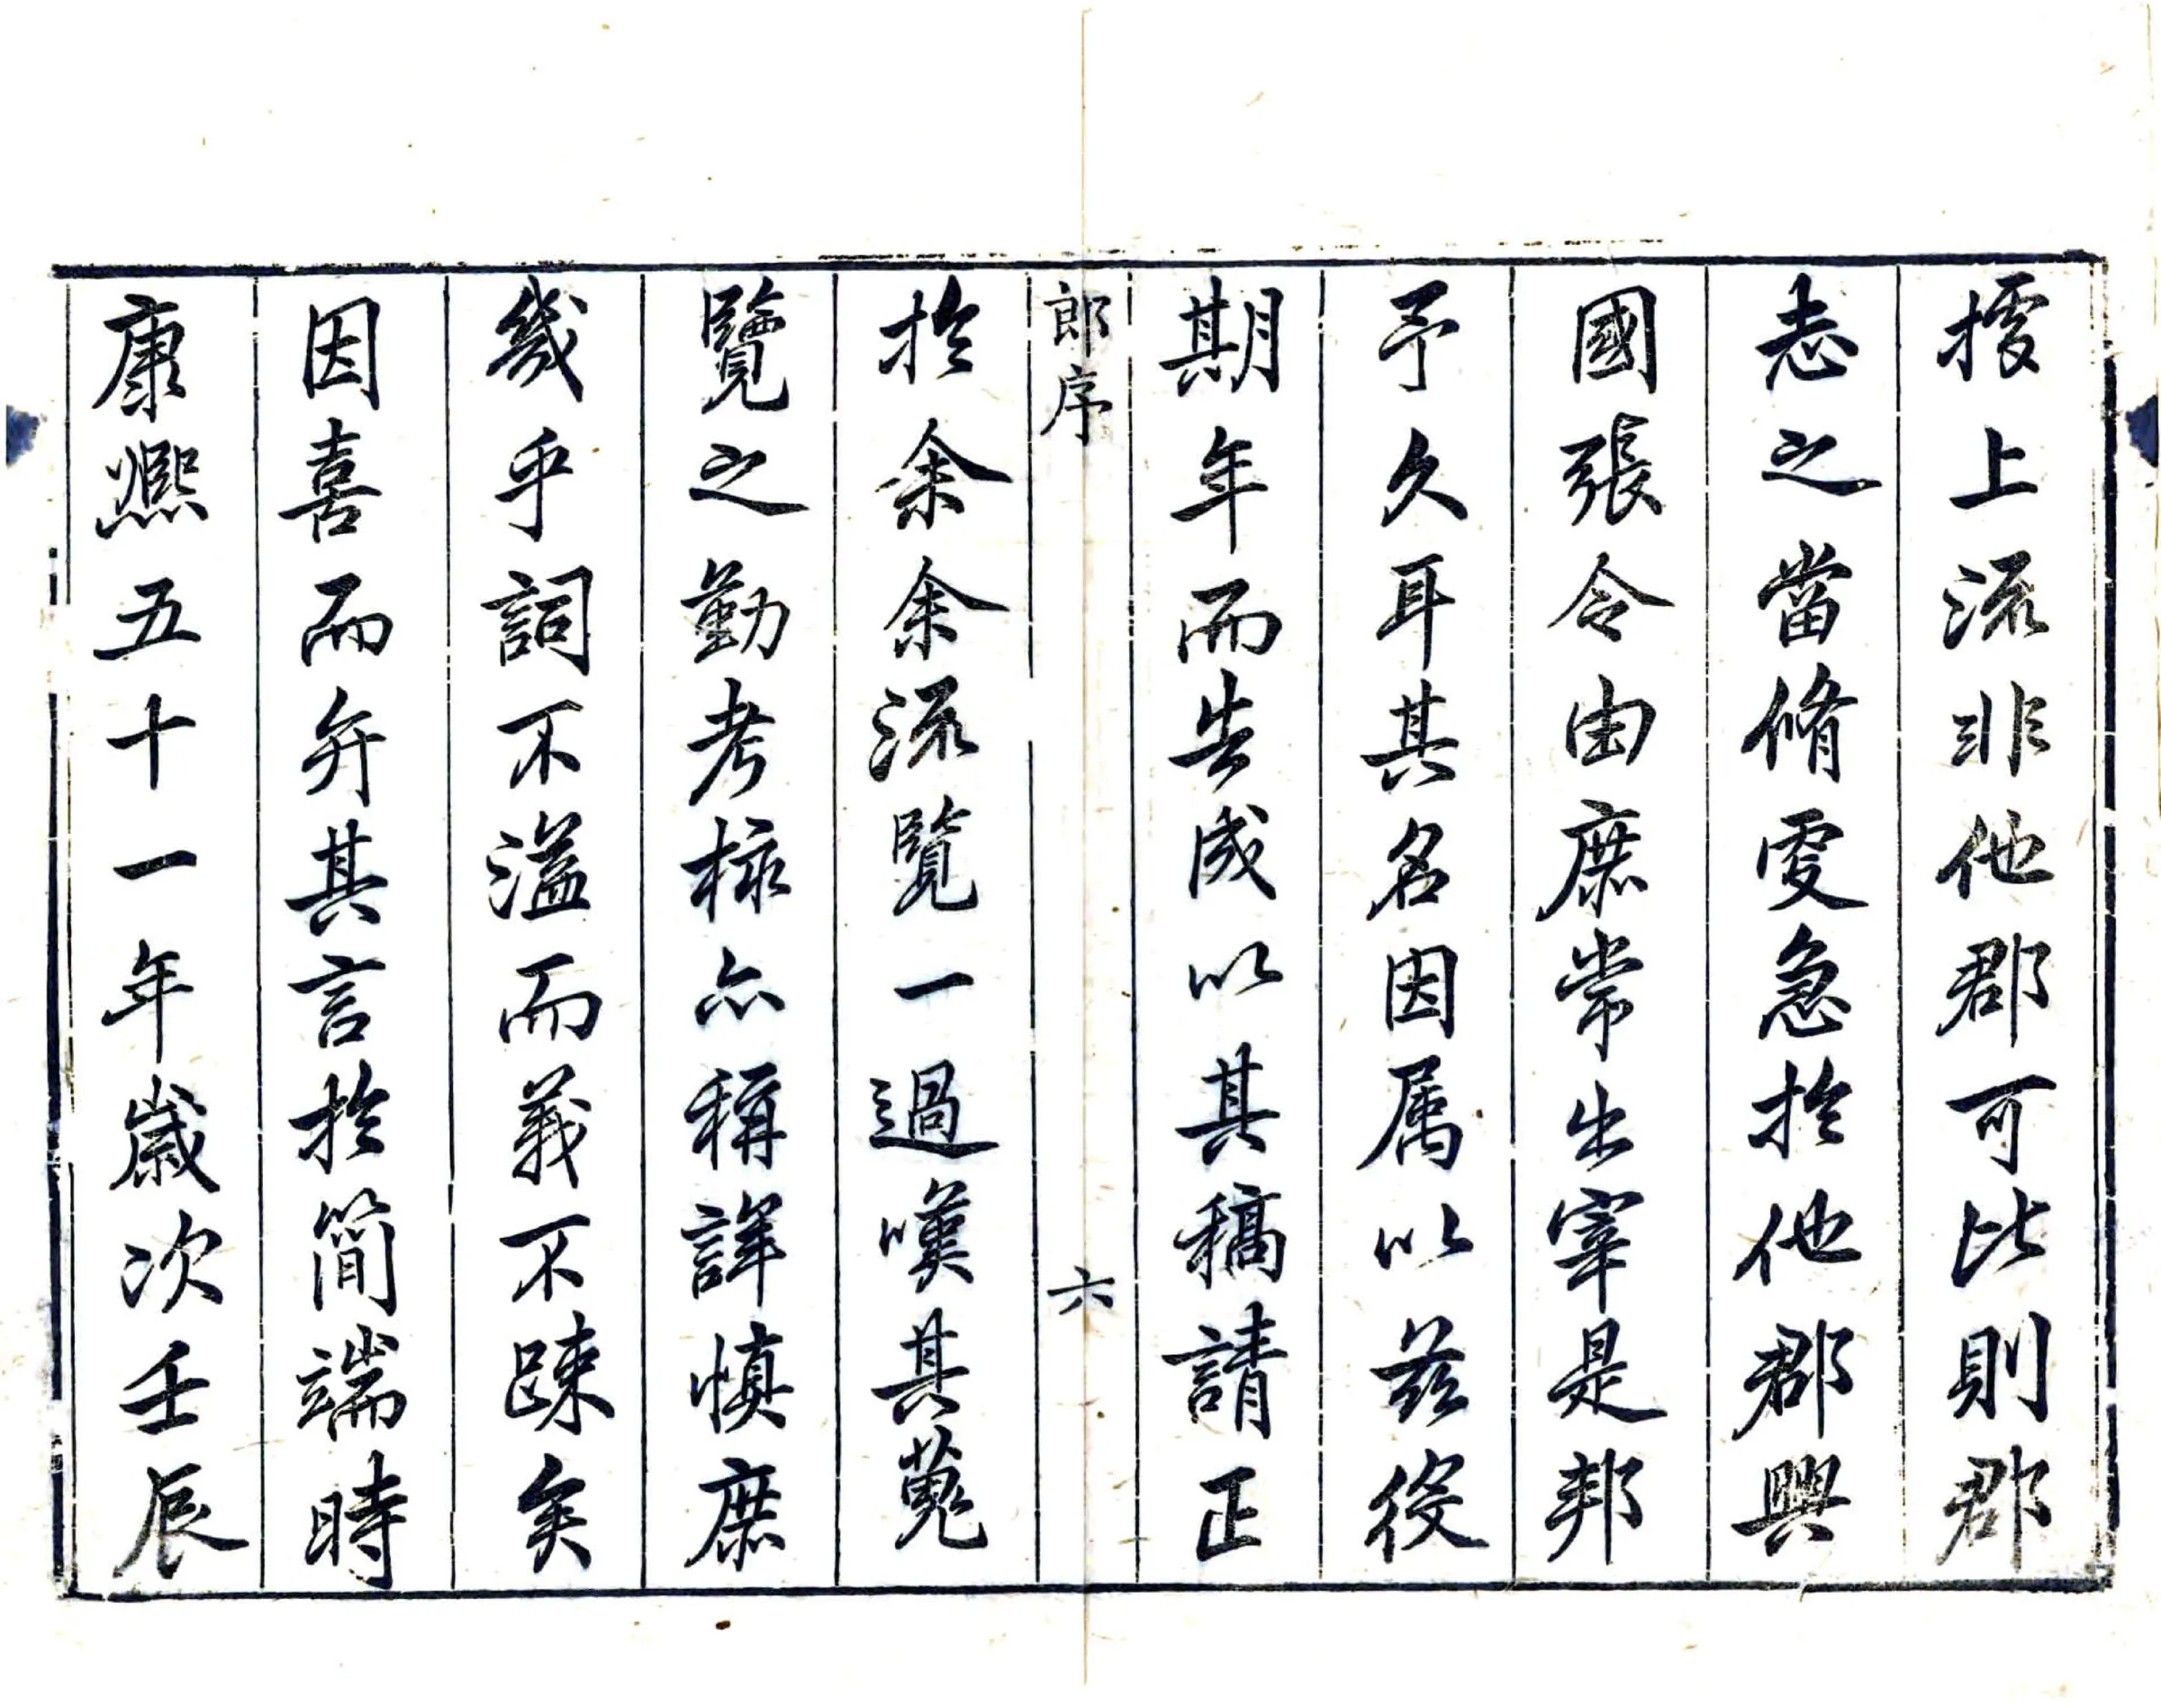 據上流非他郡可比則郡
志之當脩更急於他郡興
國張令由庶常出宰是邦
予久耳其名因属以兹役
期年而告成以其稿請正
郎序
六
於余余流覽一過嘆其蒐
覽之勤考核亦稱詳慎庶
幾乎詞不溢而義不踈矣
因喜而弁其言於簡端時
康熈五十一年歲次壬辰